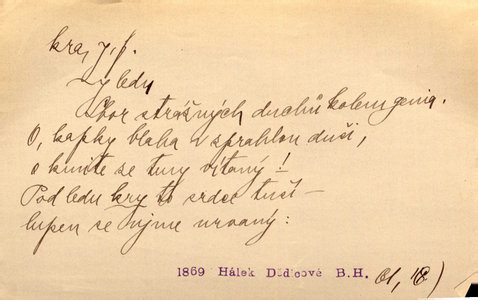 kra, j, f.
ledu
Sbor strážných duchů kolem genia.
O, kapky blaha v sprahlou duši,
o kmitte se tmy vítaný!
Pod ledu kry to srdce tuší —
lupen se ujme urvaný:
1869 Hálek Dědicové B.H. 61, 18)